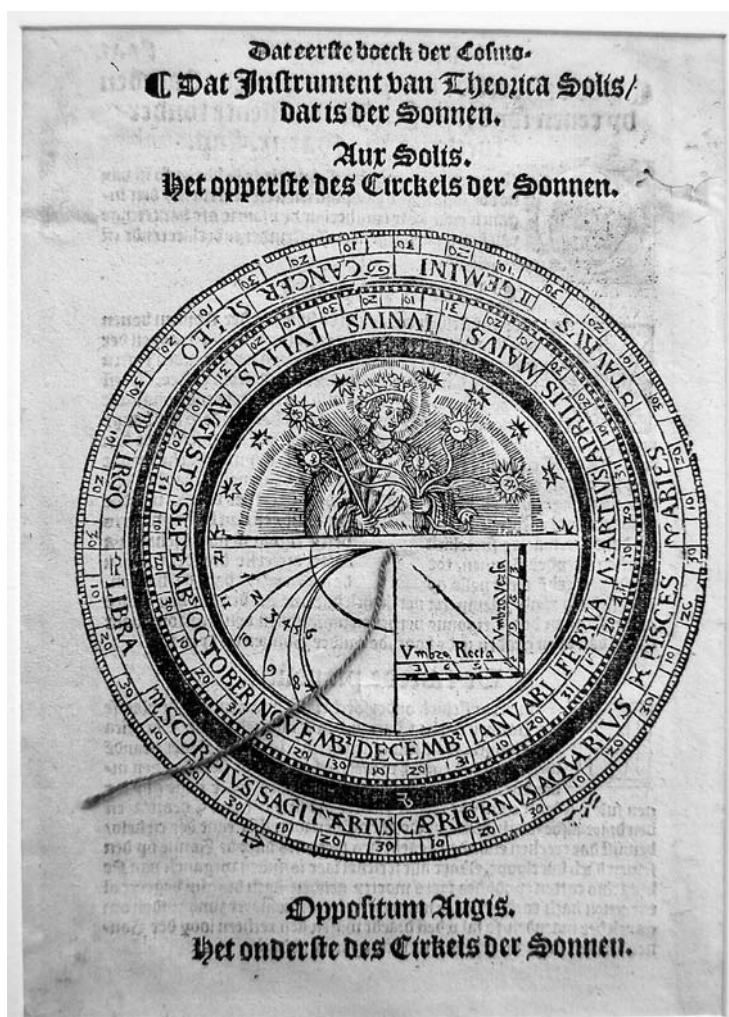 Dat eerste boeck der Cosmo-
¶ Dat Instrument van Theorica Solis/
dat is der Sonnen.
Aux Solis.
Het opperste des Circkels der Sonnen.
♈ ARIES
♉ TAURUS
♊ GEMINI
♋ CANCER
♌ LEO
♍ VIRGO
♎ LIBRA
♏ SCORPIUS
SAGITTARIUS
CAPRICORNUS
AQUARIUS
♓ PISCES
IANUARI
FEBRUA
MARTIUS
APRILIS
MAIUS
IUNIUS
IULIUS
AUGUST9
SEPTEMB
OCTOBER
NOVEMB
DECEMB
12
11
1
2
3
4
5
6
9
8
Vmbra Versa
3
6
9
Vmbra Recta
3
6
Oppositum Augis.
Het onderste des Cirkels der Sonnen.